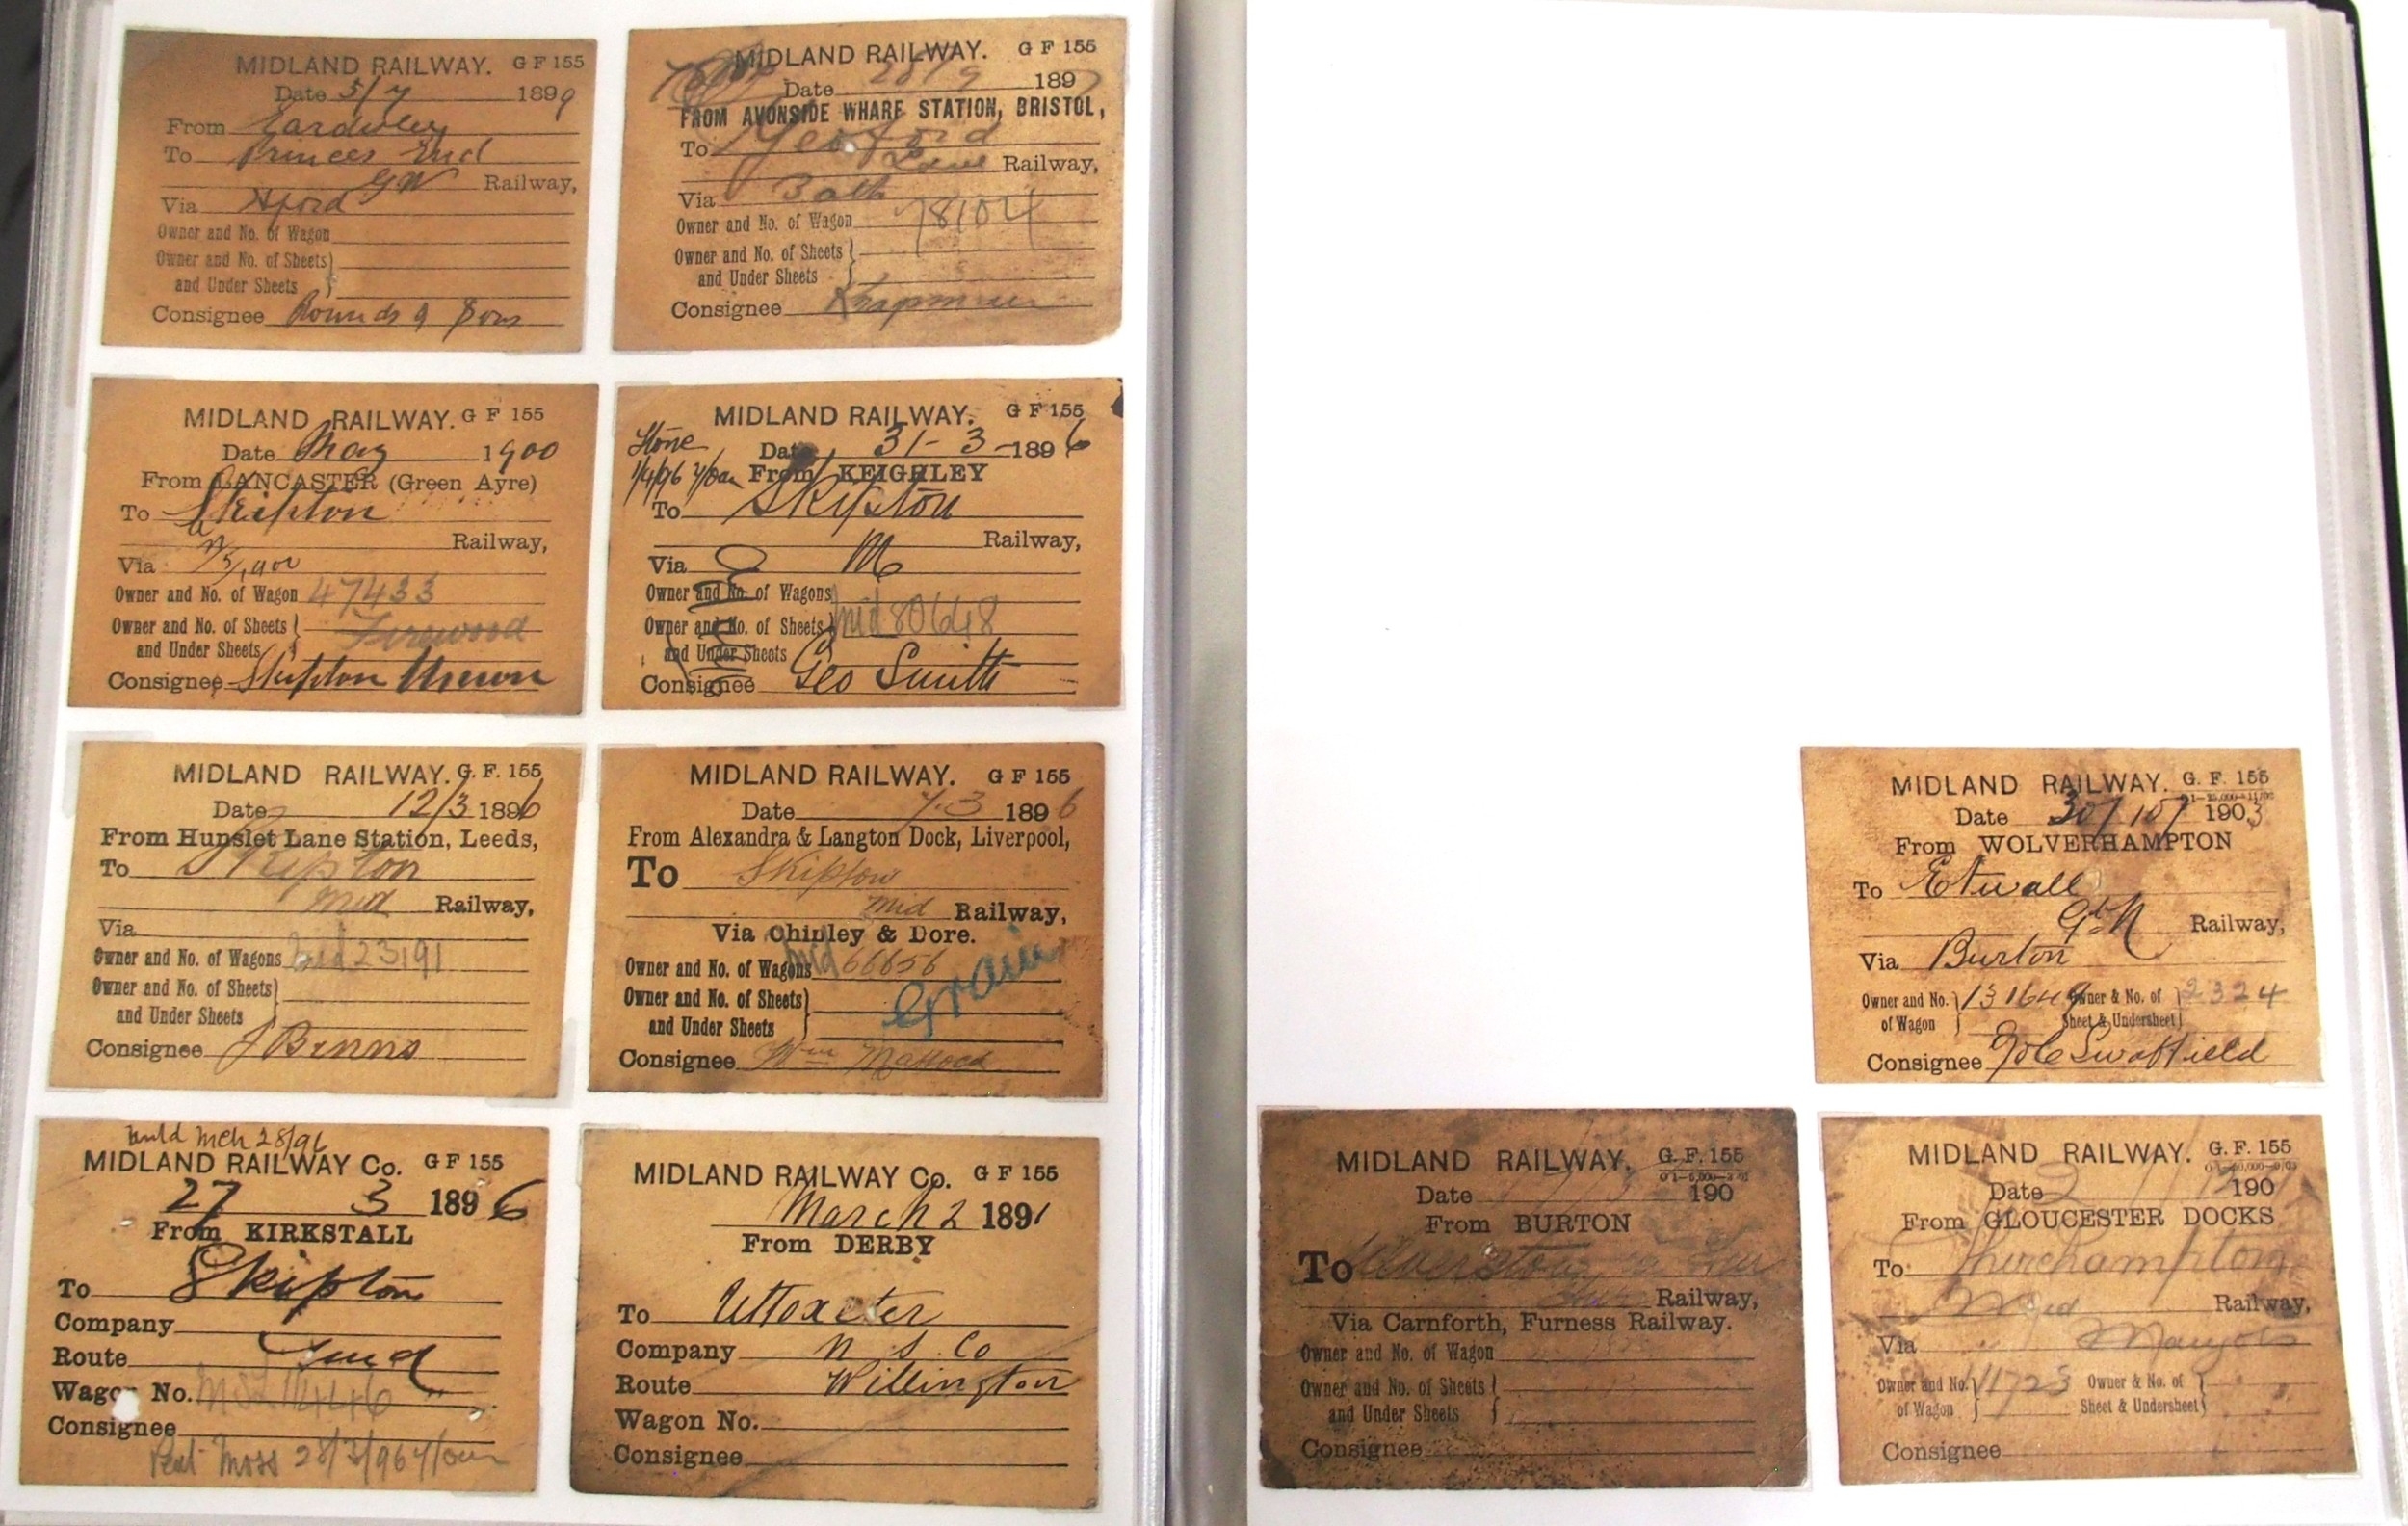 MIDLAND RAILWAY. G F 155
Date 5/7 1899
From Eardisley
To Princes End
GW Railway,
Via H,ford
Owner and No. of Wagon
Owner and No. of Sheets
and Under Sheets
Consignee Rounds & Sons
MIDLAND RAILWAY. G F 155
Date 28/9 1897
FROM AVONSIDE WHARF STATION, BRISTOL,
To Yeoford
Railway,
Via Bath
Owner and No. of Wagon 78104
Owner and No. of Sheets
and Under Sheets
Consignee Chapman
MIDLAND RAILWAY. G F 155
Date May 1900
From LANCASTER (Green Ayre)
To Skipton
Railway,
Via
Owner and No. of Wagon 47433
Owner and No. of Sheets Firewood
and Under Sheets
Consignee Skipton Union
MIDLAND RAILWAY. G F 155
Stone Date 31-3-1896
1/4/96 From KEIGHLEY
To Skipton
Railway,
Via M
Owner and No. of Wagons
Owner and No. of Sheets Mid 80648
and Under Sheets
Consignee Geo Smith
MIDLAND RAILWAY. G. F. 155
Date 12/3 1896
From Hunslet Lane Station, Leeds,
To Skipton
Mid Railway,
Via
Owner and No. of Wagons Mid 23191
Owner and No. of Sheets
and Under Sheets
Consignee J Binns
MIDLAND RAILWAY. G F 155
Date 7.3 1896
From Alexandra & Langton Dock, Liverpool,
To Skipton
Mid Railway,
Via Chinley & Dore.
Owner and No. of Wagons Mid 66656
Grain
Owner and No. of Sheets
and Under Sheets
Consignee Wm Mattock
28/96
MIDLAND RAILWAY Co. G F 155
27 3 1896
From KIRKSTALL
To Skipton
Company
Route
Wagon No. 14446
Consignee
Peat Moss 28/3/96
MIDLAND RAILWAY Co. G F 155
March 2 1891
From DERBY
To Uttoxeter
Company N S Co
Route Willington
Wagon No.
Consignee
MIDLAND RAILWAY. G. F. 155
Date 30/10/ 1903
From WOLVERHAMPTON
To Etwall
Gt N Railway,
Via Burton
Owner and No. of Wagon 131649 Owner & No. of Sheet & Undersheet 2324
Consignee Swaffield
MIDLAND RAILWAY. G. F. 155
Date 190
From BURTON
To Ulverston
Railway,
Via Carnforth, Furness Railway.
Owner and No. of Wagon
Owner and No. of Sheets
and Under Sheets
Consignee
MIDLAND RAILWAY. G. F. 155
Date 190
From GLOUCESTER DOCKS
To
Mid Railway,
Via
Owner and No. of Wagon 11723 Owner & No. of Sheet & Undersheet
Consignee